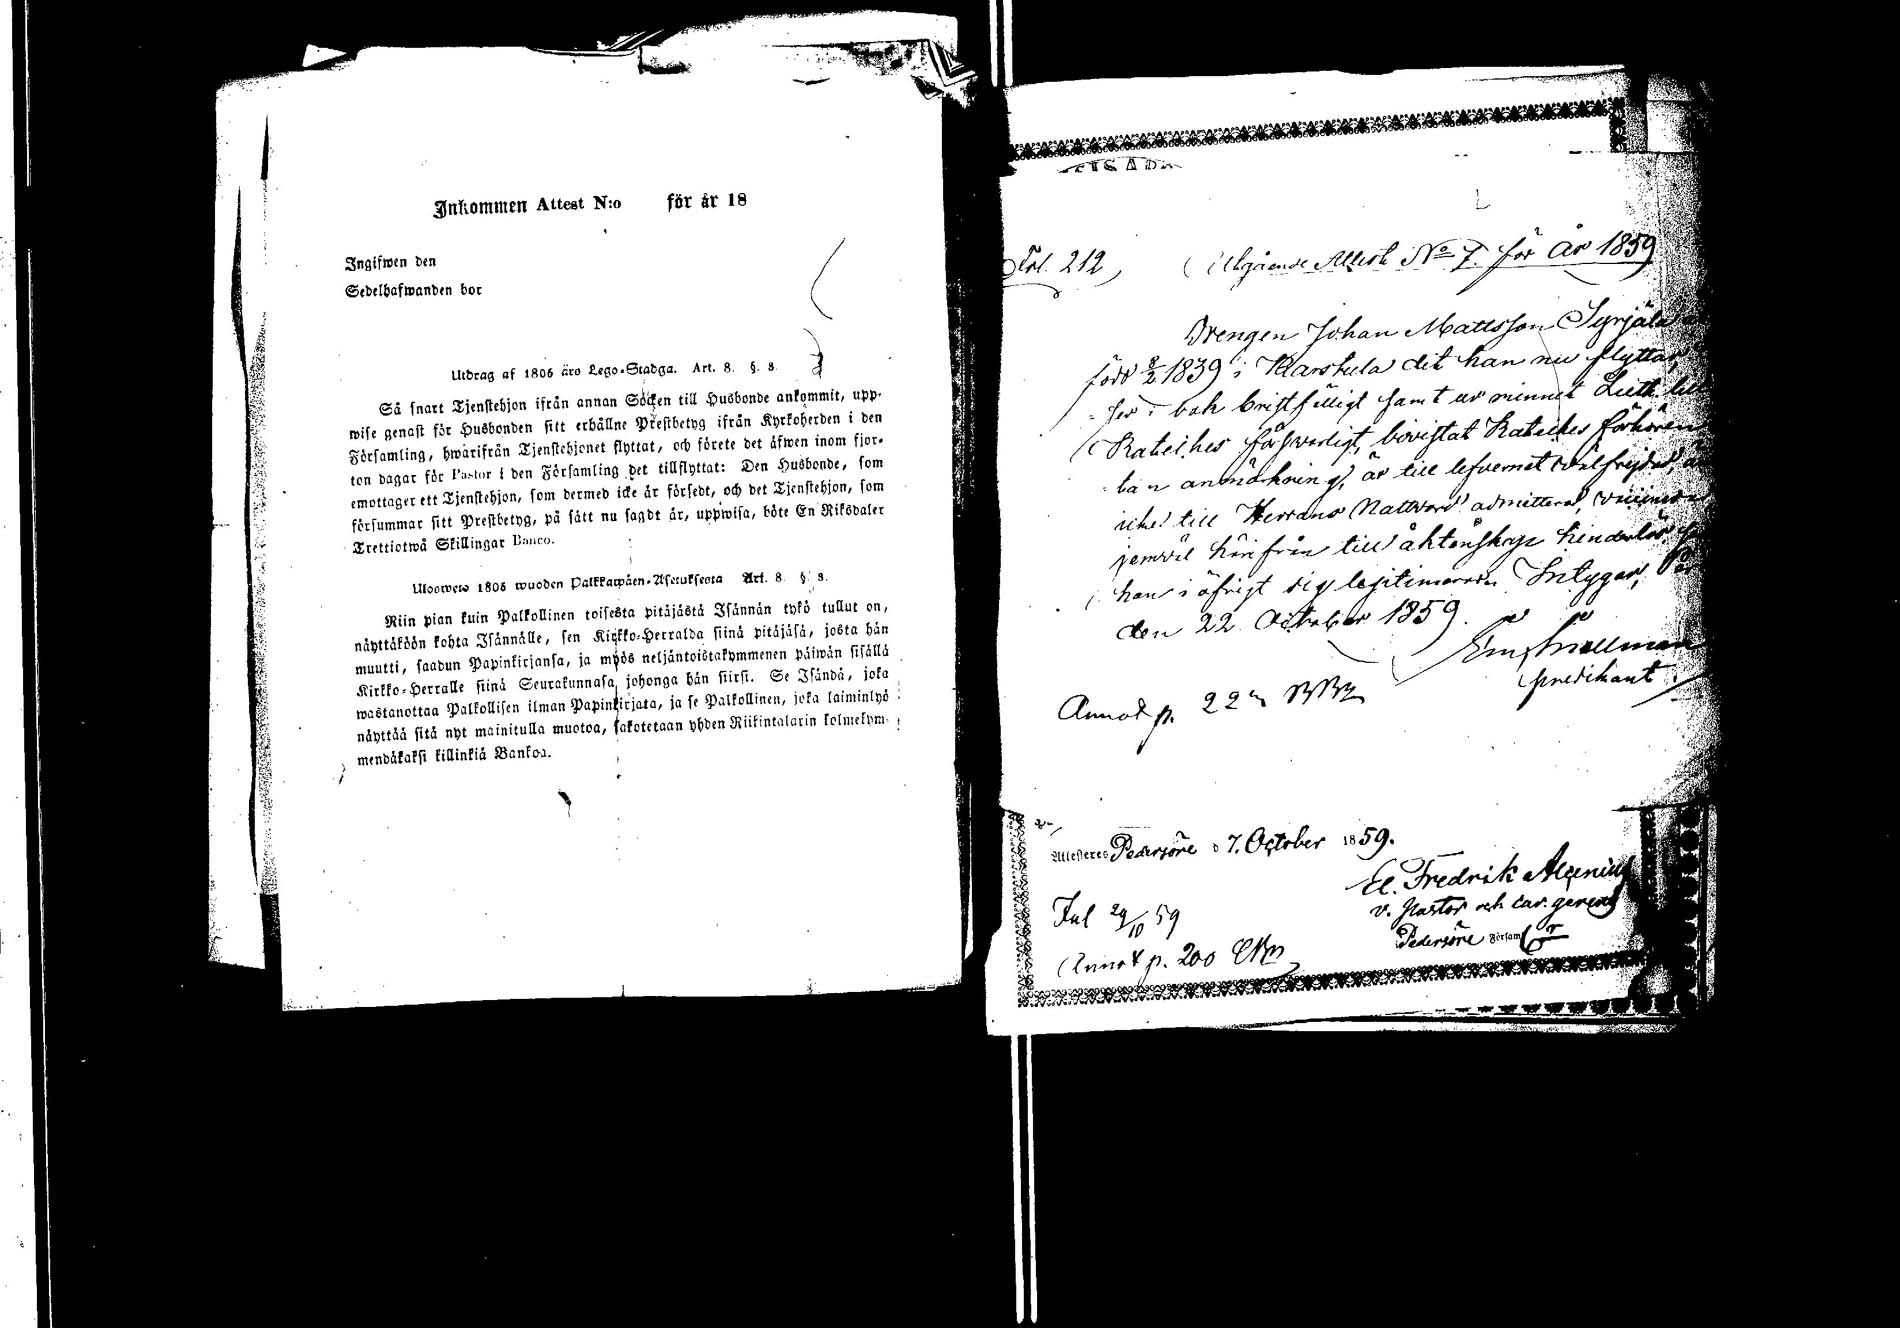 Inkommen Attest N:o för år 18
Ingifwen den
Sedelhafwanden bor
Utdrag af 1805 års Lego-Stadga. Art. 8. §. 8.
Så snart Tjenstehjon ifrån annan Socken till Husbonde ankommit, upp-
wise genast för Husbonden sitt erhållne Prestbetyg ifrån Kyrkoherden i den
Församling, hwarifrån Tjenstehjonet flyttat, och förete det äfwen inom fjor-
ton dagar för Pastor i den Församling det tillflyttat: Den Husbonde, som
emottager ett Tjenstehjon, som dermed icke är försedt, och det Tjenstehjon, som
försummar sitt Prestbetyg, på sätt nu sagdt är, uppwisa, böte En Riksdaler
Trettiotwå Skillingar Banco.
Ulosweto 1805 wuoden Palkkawäen-Asetuksesta Art. 8. § 8.
Niin pian kuin Palkollinen toisesta pitäjästä Isännän tykö tullut on,
näyttäköön kohta Isännälle, sen Kirkko-Herralda siinä pitäjäsä, josta hän
muutti, saadun Papinkirjansa, ja myös neljäntoistakymmenen päiwän sisällä
Kirkko-Herralle siinä Seurakunnasa johonga hän siirsi. Se Isändä, joka
wastanottaa Palkollisen ilman Papinkirjata, ja se Palkollinen, joka laiminlyö
näyttää sitä nyt mainitulla muotoa, sakotetaan yhden Riikintalarin kolmekym-
mendäkaksi killinkiä Bankoa.
Fol. 212
Utgående Attest No 7. för År 1859
Drengen Johan Mattsson Syrjälä
född 8/2 1839 i Karstula dit han nu flyttar,
ser i bok bristfälligt samt ur minnet Luth. lilla
Kateches försvarligt, bevistat Kateches förhören
utan anmärkning, är till lefvernet välfrejdad,
till Herrans Nattvard admitterad,
jemväl härifrån till äktenskap hinderlös,
han i öfrigt sig legitimerar. Intygar,
den 22 October 1859.
Em. Snellman
predikant
Annot p. 22
Attesteras Pedersöre d 7. October 1859.
El. Fredrik Alcenius
v. pastor och
Pedersöre Församl
Ful 29/10 59
Annot p. 200